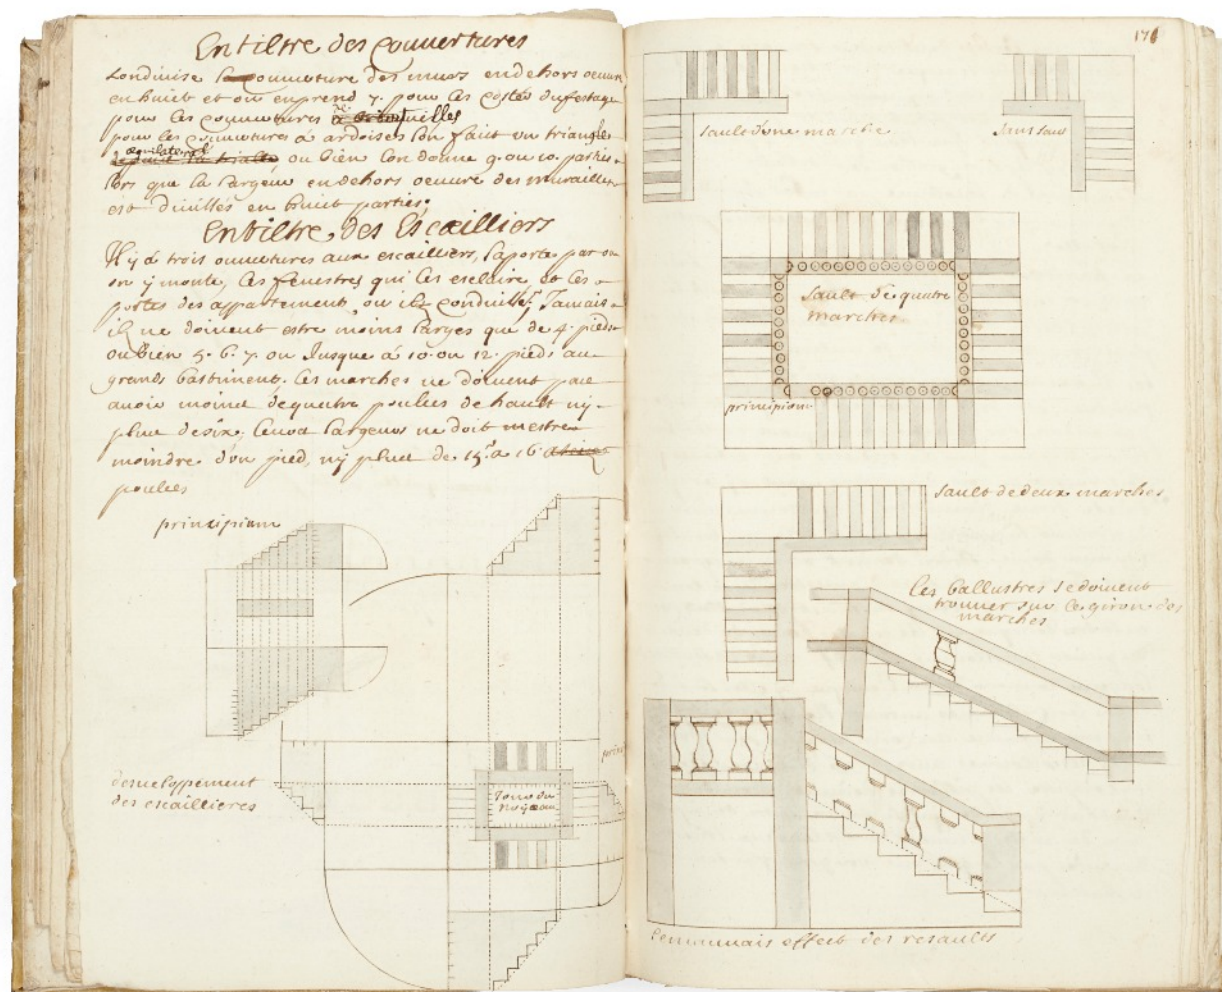 Entiltre des couvertures
Londivise la couverture des murs endehors oeuvre
en huict et on enprend 7. pour les costés du festage
pour les couvertures à tuilles
pour les couvertures à ardoises lon faict un triangle
equilateral ou bien lon donne 9. ou 10. parties
lors que la largeur endehors oeuvre des murailles
est divisés en huict parties;
Entiltre des Escailliers
Il y à trois ouvertures aux escailliers, laporte par ou
on ÿ monte, les fenestres qui les esclaire, et les
portes des appartement, ou ils conduisse; Jamais
il ne doivent estre moins larges que de 4. pieds
oubien 5. 6. 7. ou Jusque à 10. ou 12. pieds au
grands bastiments. les marches ne doivent pae
avoir moins de quatre poulces de hault nÿ
plus de six, Leurs largeurs ne doit
moindre d'un pied, nÿ plus de 15. a 16
poulces
principium
desveloppement
des escaillieres
Tour du
noÿeau
176
sault d'une marche
sans saus
sault de quatre
marches.
principium
sault de deux marches
les ballustres se doivent
trouver sur le giron des
marches
Le mauvais effect des resaults